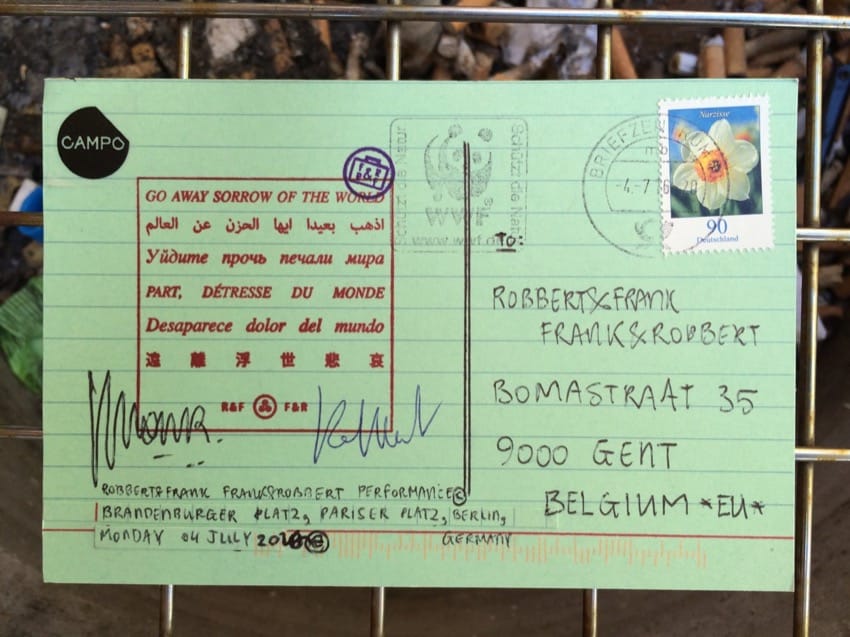 CAMPO
GO AWAY SORROW OF THE WORLD
اذهب بعيدا ايها الحزن عن العالم
Уйдите прочь печали мира
PART, DÉTRESSE DU MONDE
Desaparece dolor del mundo
遠離浮世悲哀
R&F F&R
ROBBERT&FRANK FRANK&ROBBERT PERFORMANCE
BRANDENBURGER PLATZ, PARISER PLATZ, BERLIN,
MONDAY 04 JULY GERMANY
Schützt die Natur
WWF
Schützt die Natur
www.wwf.de
BRIEFZENTRUM
-4.-7.16-20
Narzisse
90
Deutschland
TO:
ROBBERT&FRANK
FRANK&ROBBERT
BOMASTRAAT 35
9000 GENT
BELGIUM *EU*